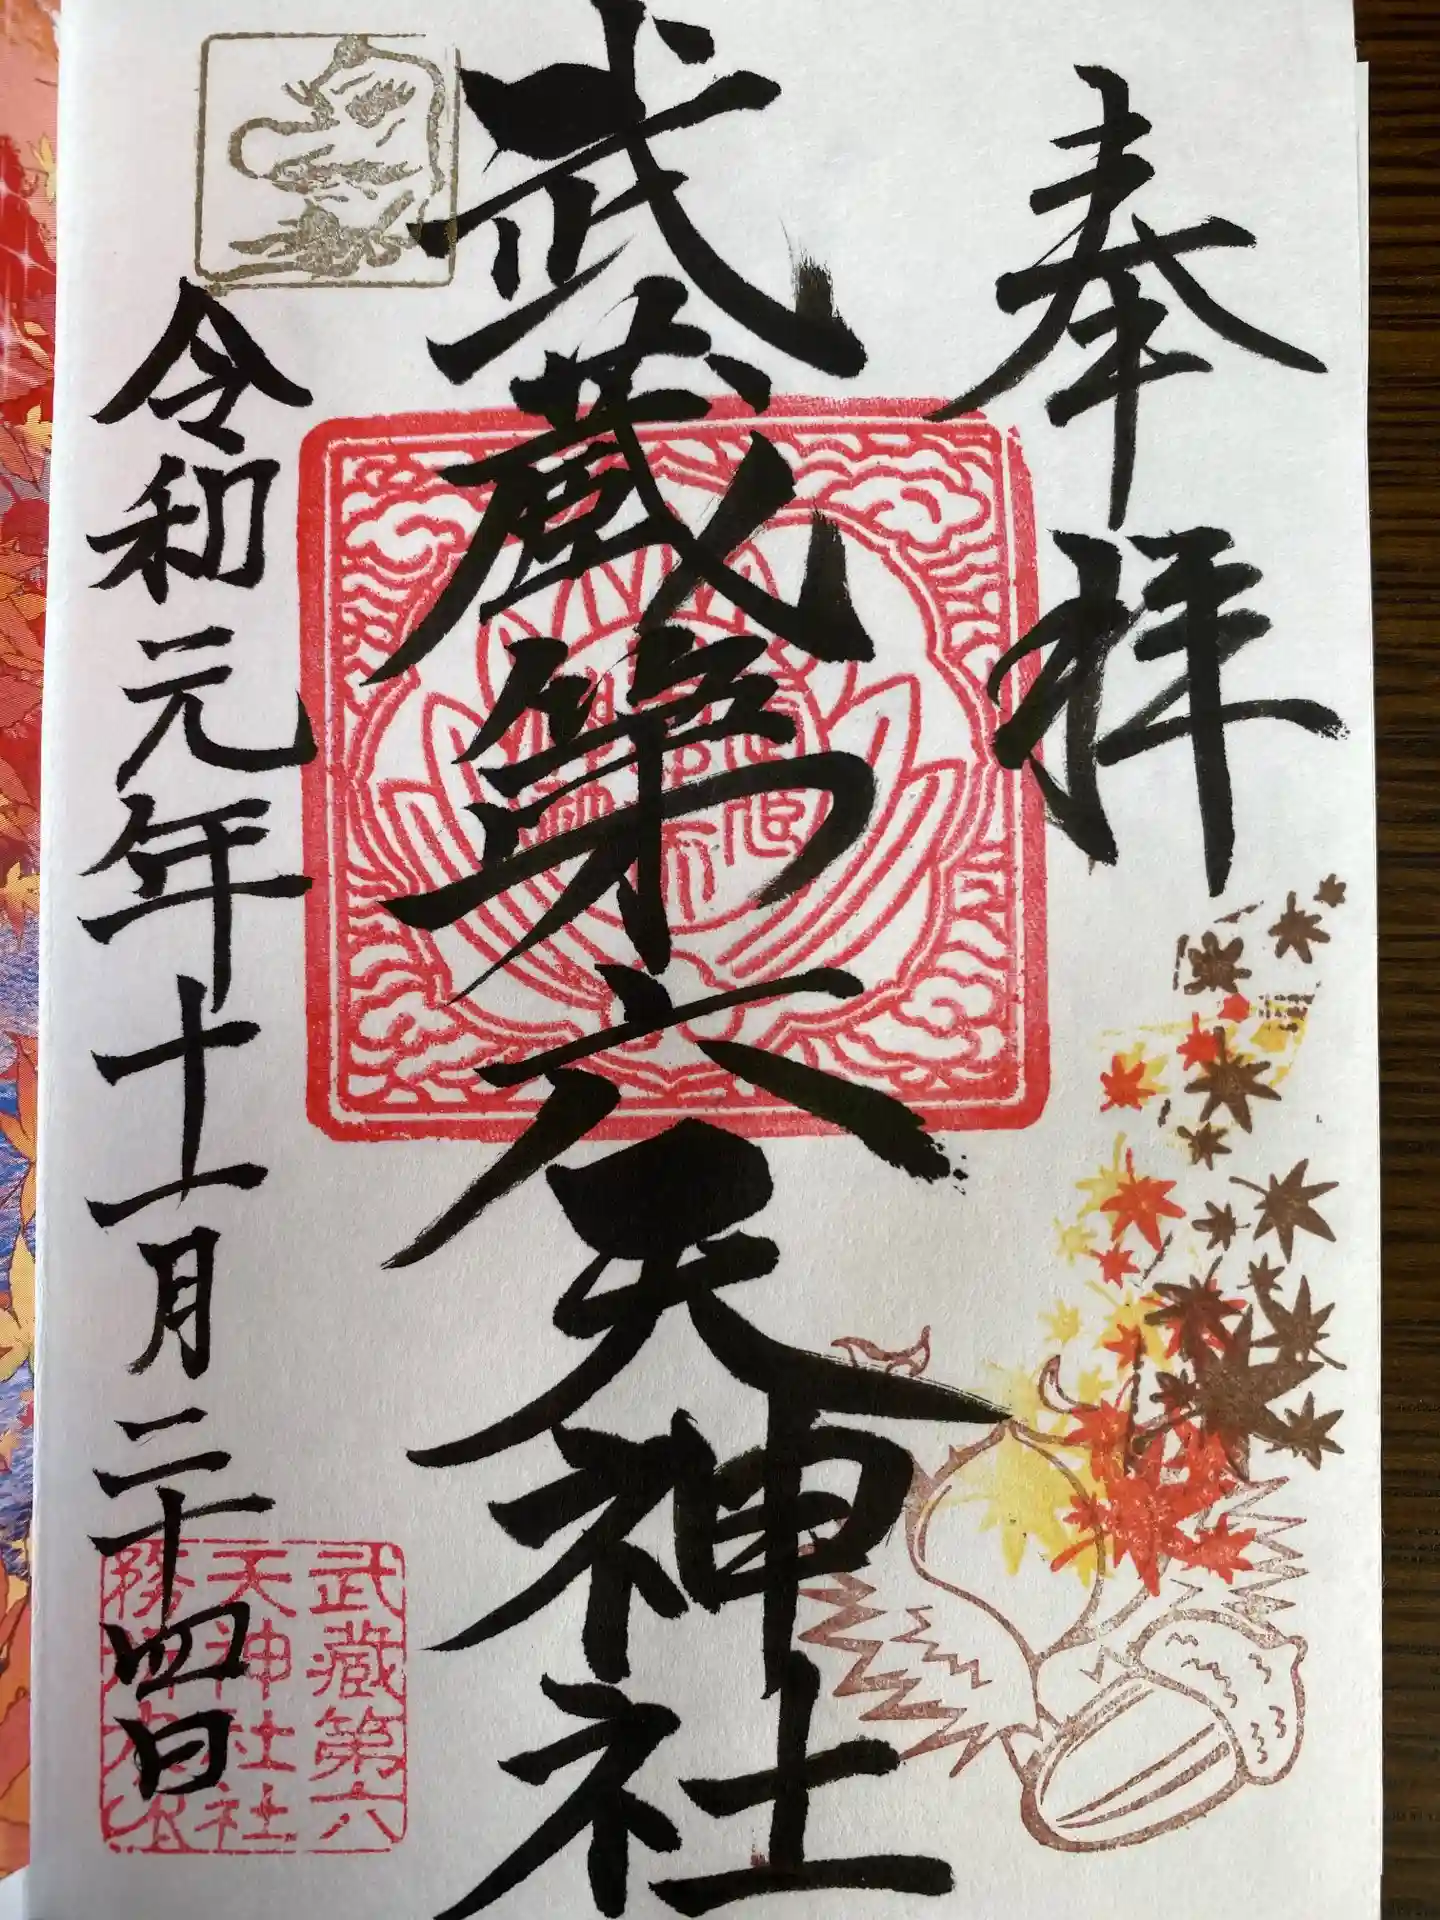 奉拝
武蔵第六天神社
令和元年十一月二十四日
武蔵第六
天神社社
務